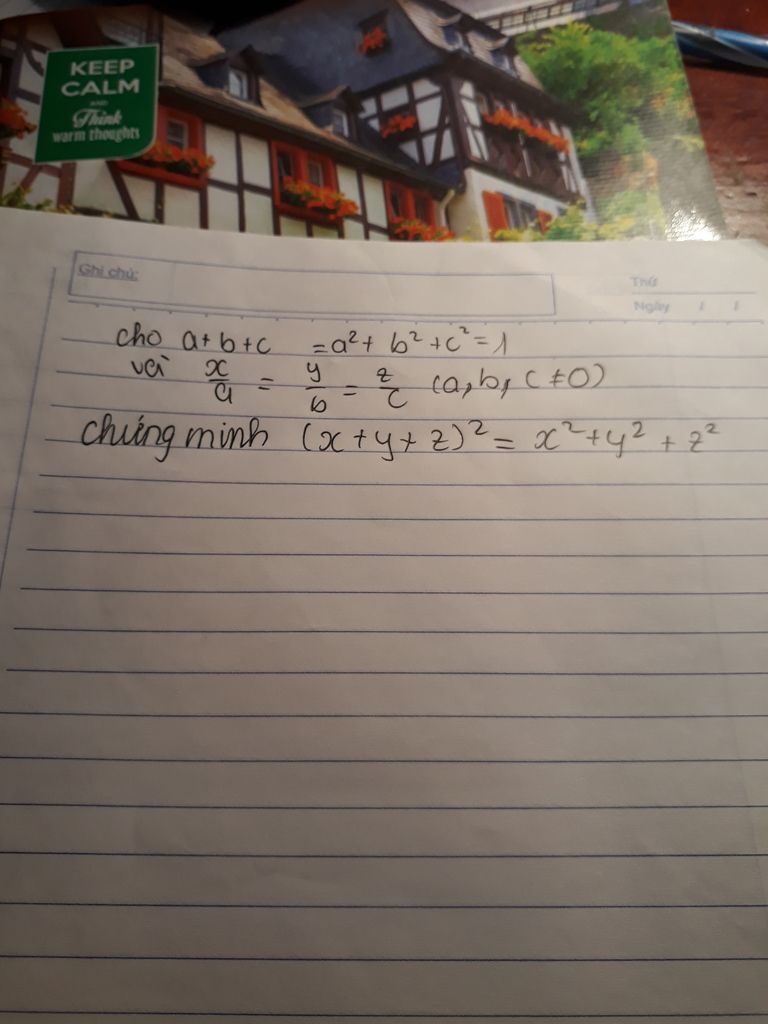 KEEP
CALM
AND
Think
warm thoughts
Ghi chú:
Thứ
Ngày / /
cho a+b+c = a² + b² + c² = 1
và x/a = y/b = z/c (a, b, c ≠ 0)
chứng minh (x+y+z)² = x² + y² + z²